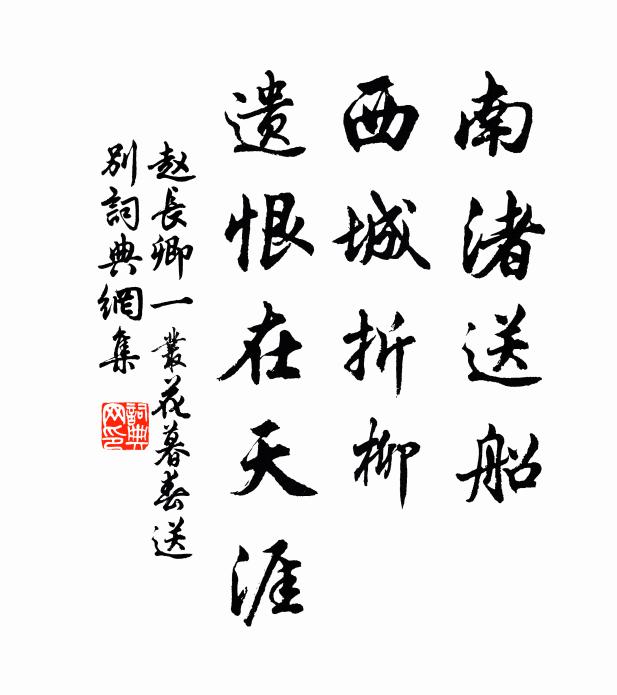 南渚送船
西城折柳
遗恨在天涯
赵長卿一叢花暮春送
别詞典網集
詞典
网印